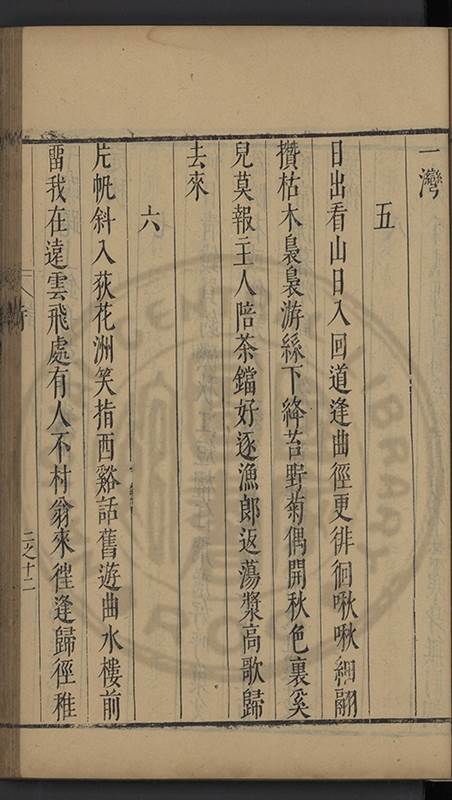 一灣
五
日出看山日入回道逢曲徑更徘徊啾啾細翮
攢枯木裊裊游絲下絳苔野菊偶開秋色裏奚
兒莫報主人陪茶鐺好逐漁郎返蕩槳高歌歸
去來
六
片帆斜入荻花洲笑指西谿話舊遊曲水樓前
畱我在遠雲飛處有人不村翁來徃逢歸徑稚
二之十二